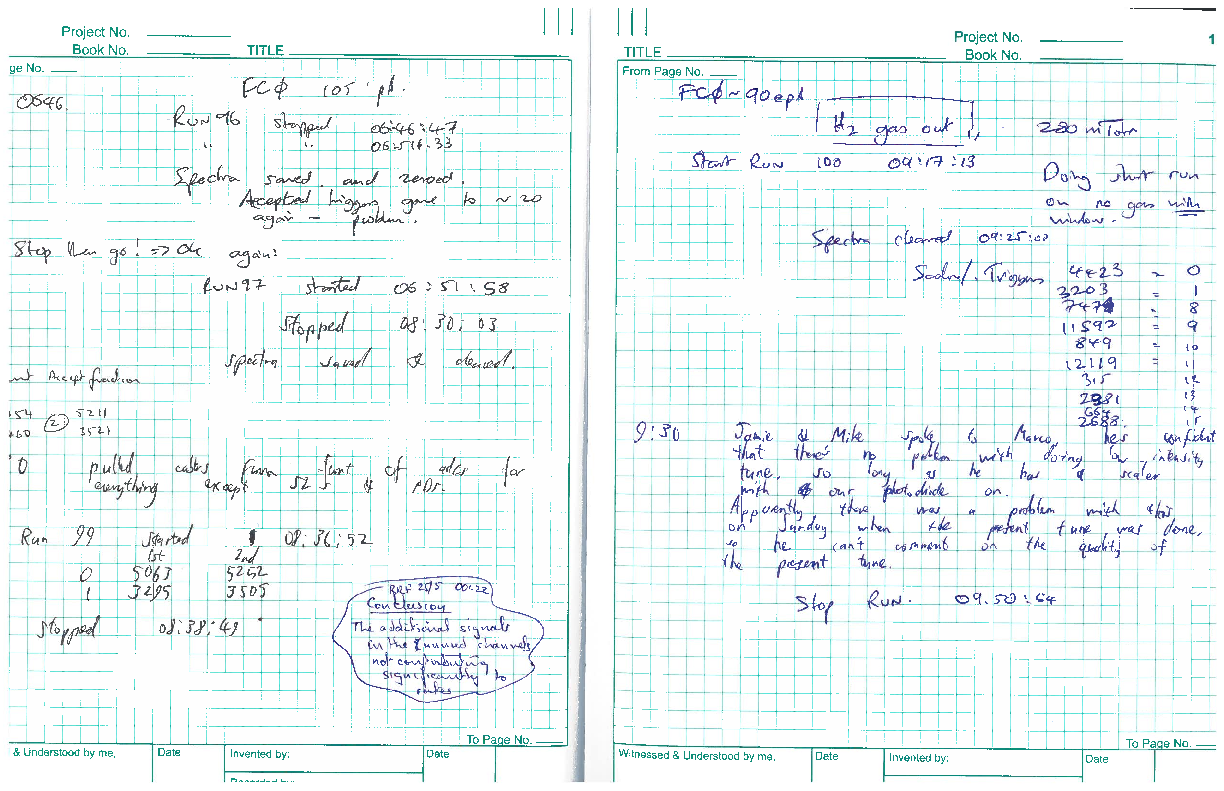 Project No.
Book No.
TITLE
ge No.
0646.
FCØ 105 pA.
RUN 96 stopped 06:46:47
" "
Spectra saved and zeroed.
Accepted triggers gone to ~ 20
again — problem.
Stop then go! => Ok again!
RUN 97 started 06:51:58
Stopped 08:30:03
Spectra saved & cleared.
nt Accept fraction
154 (2) 5211
3521
0 pulled cables from front of adcs for
everything except S2's & PDs.
Run 99 Started 08:36:52
1st 2nd
0 5063 5252
1 3295 3505
Stopped 08:38:49
RRF 25/5 00:22
Conclusion
The additional signals
in the unused channels
not contributing
significantly to
rates
To Page No.
& Understood by me,
Date
Invented by:
Date
Project No.
Book No.
1
TITLE
From Page No.
FCØ ~ 90epA
H2 gas out
280 mTorr
Start RUN 100 09:17:13
Doing short run
on no gas with
window.
Spectra cleared 09:25:00
Triggers 4423 = 0
2203 = 1
7471 = 8
11592 = 9
849 = 10
12119 = 11
315 12
2981 13
664 14
2688. 15
9:30 Jamie & Mike spoke to Marco, he's confident
that there's no problem with doing low intensity
tune, so long as he has a scaler
with our photodiode on.
Apparently there was a problem with this
on Sunday when the present tune was done,
so he can't comment on the quality of
the present tune.
Stop RUN. 09:50:54
To Page No.
Witnessed & Understood by me,
Date
Invented by:
Date